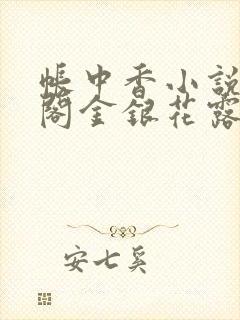 帳中香小說
閣金銀花露
安七奚